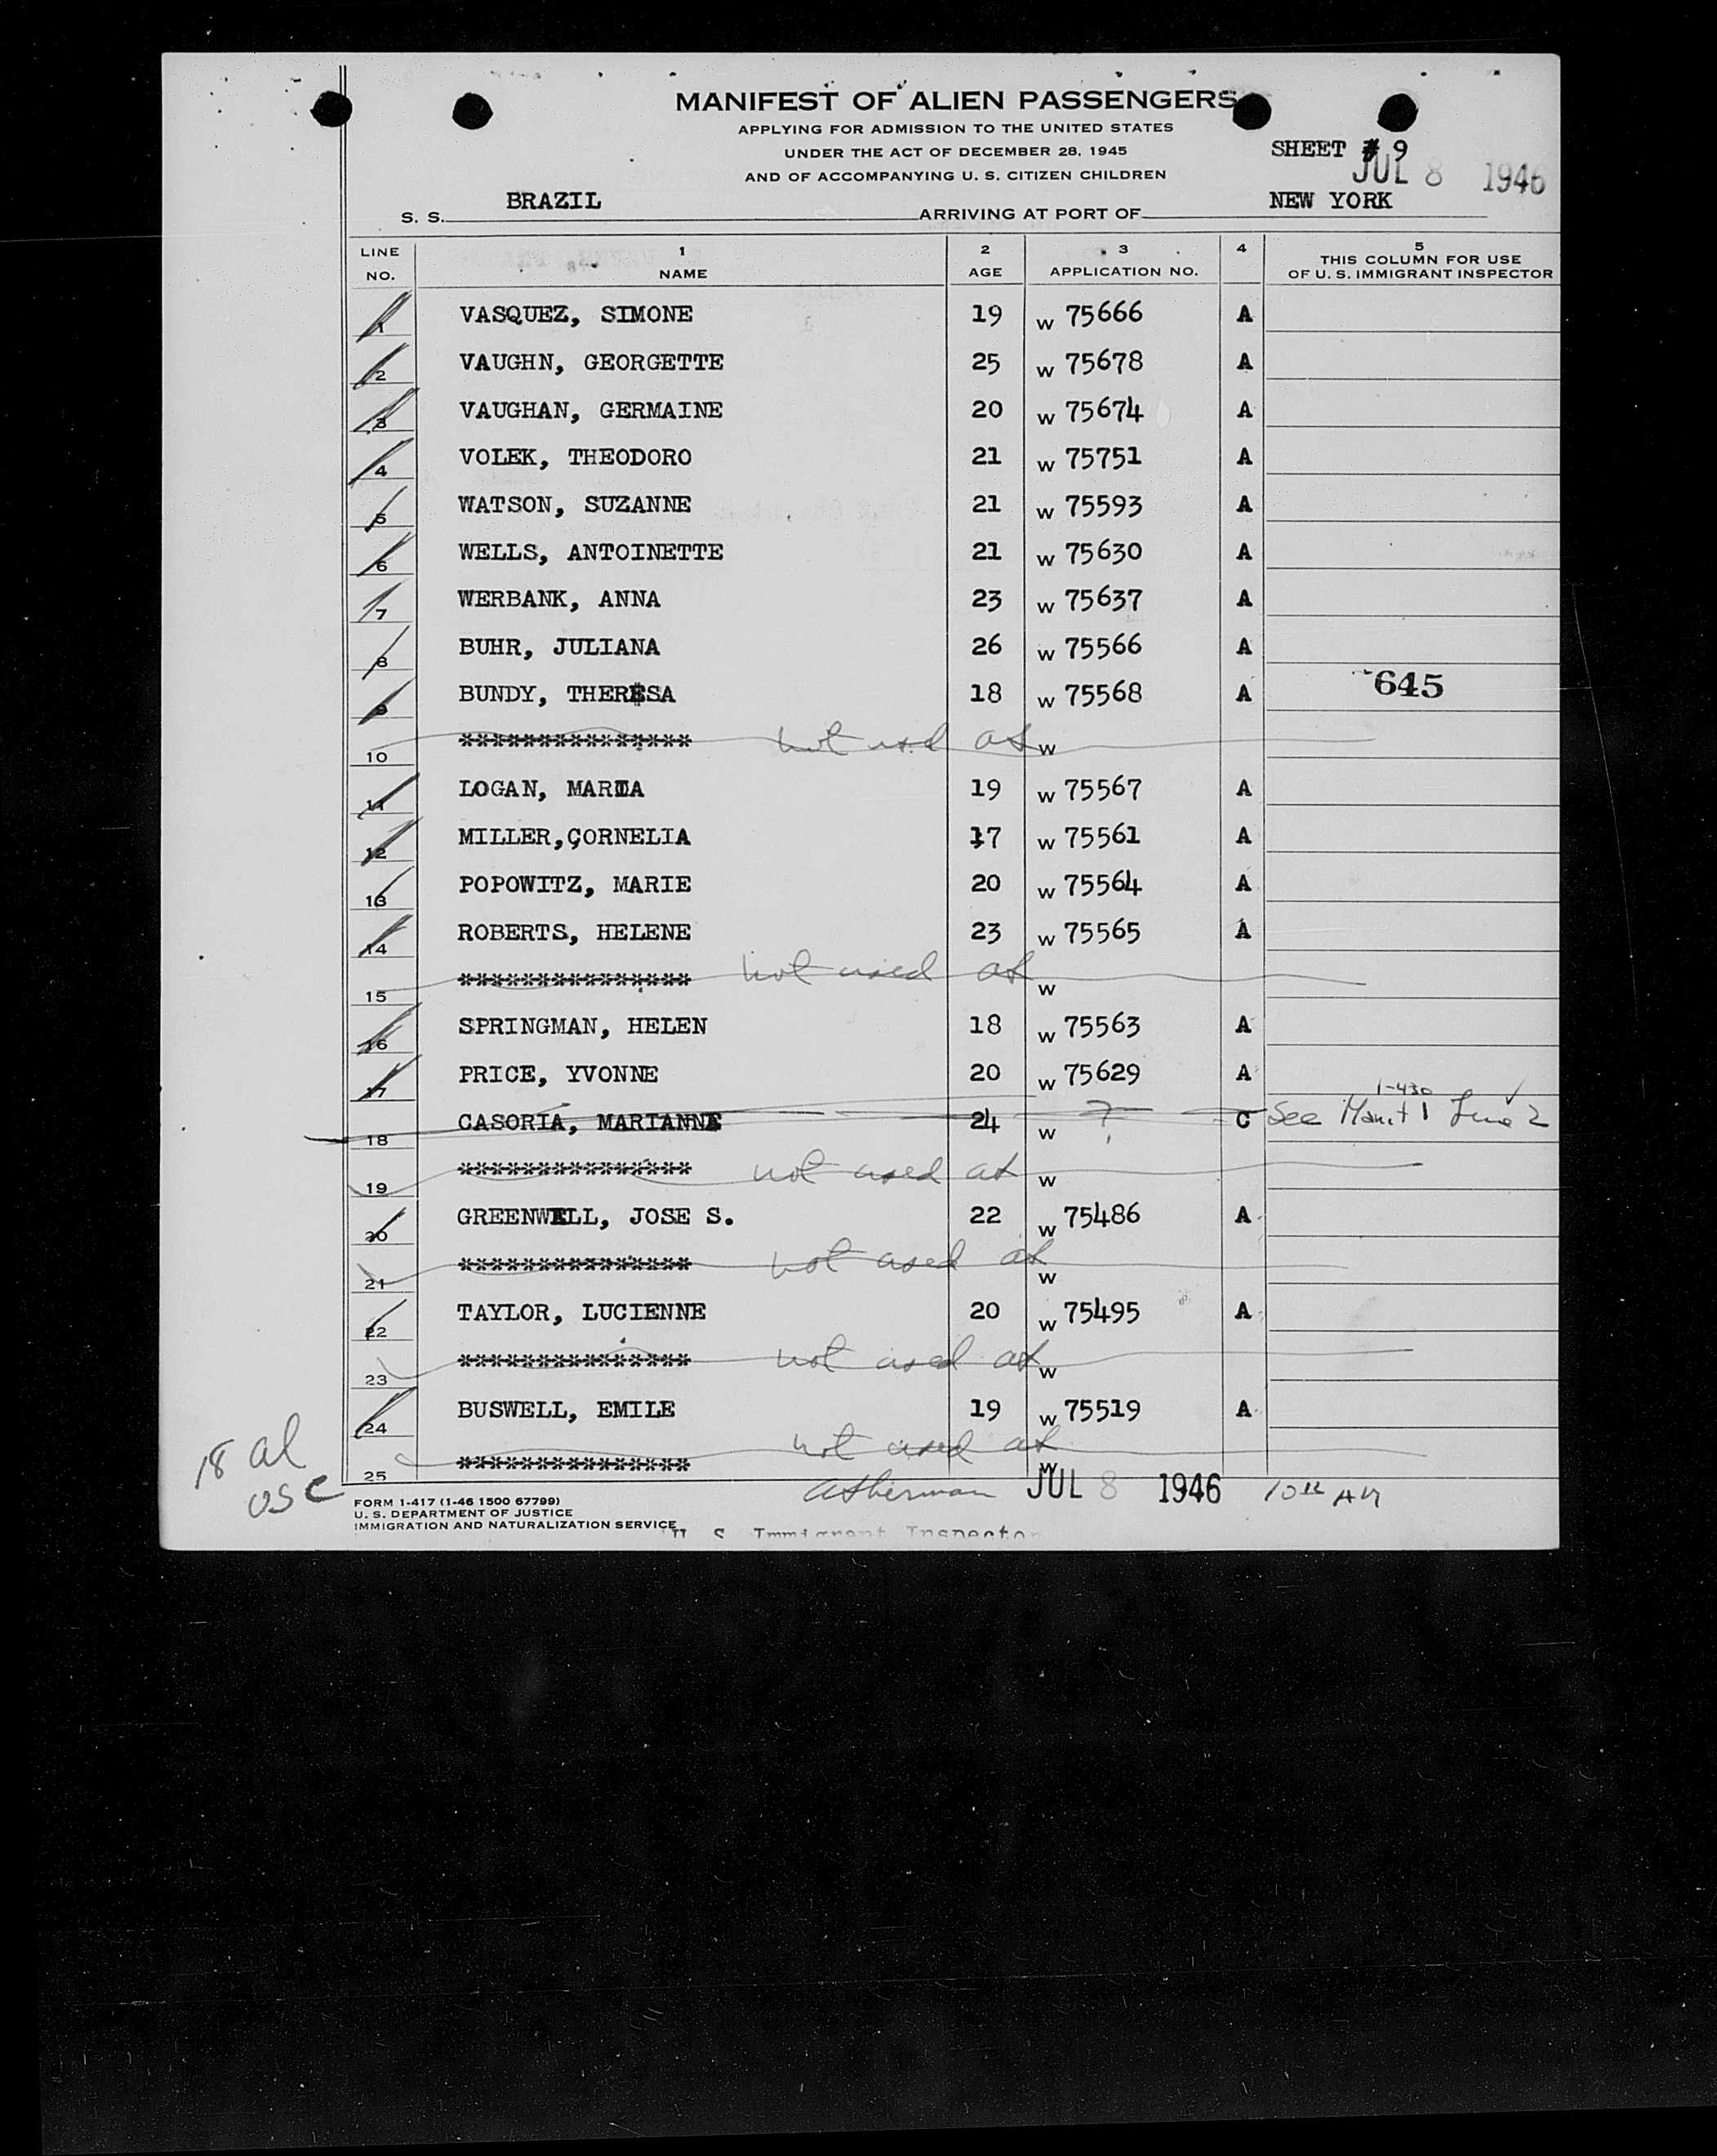 MANIFEST OF ALIEN PASSENGERS
APPLYING FOR ADMISSION TO THE UNITED STATES
UNDER THE ACT OF DECEMBER 28, 1945
AND OF ACCOMPANYING U. S. CITIZEN CHILDREN
SHEET # 9
JUL 8 1946
S. S. BRAZIL ARRIVING AT PORT OF NEW YORK
LINE NO. 1 NAME 2 AGE 3 APPLICATION NO. 4 5 THIS COLUMN FOR USE OF U. S. IMMIGRANT INSPECTOR
1 VASQUEZ, SIMONE 19 W 75666 A
2 VAUGHN, GEORGETTE 25 W 75678 A
3 VAUGHAN, GERMAINE 20 W 75674 A
4 VOLEK, THEODORO 21 W 75751 A
5 WATSON, SUZANNE 21 W 75593 A
6 WELLS, ANTOINETTE 21 W 75630 A
7 WERBANK, ANNA 23 W 75637 A
8 BUHR, JULIANA 26 W 75566 A
9 BUNDY, THERESA 18 W 75568 A 645
10 *************** not used at W
11 LOGAN, MARIA 19 W 75567 A
12 MILLER, CORNELIA 17 W 75561 A
13 POPOWITZ, MARIE 20 W 75564 A
14 ROBERTS, HELENE 23 W 75565 A
15 *************** not used at W
16 SPRINGMAN, HELEN 18 W 75563 A
17 PRICE, YVONNE 20 W 75629 A
1-430
18 CASORIA, MARIANNE 24 W ? C See Manit 1 Line 2
19 *************** not used at W
20 GREENWELL, JOSE S. 22 W 75486 A
21 *************** not used at W
22 TAYLOR, LUCIENNE 20 W 75495 A
23 *************** not used at W
24 BUSWELL, EMILE 19 W 75519 A
25 *************** not used at W
18 al
USC
JUL 8 1946
FORM I-417 (1-46 1500 67799)
U. S. DEPARTMENT OF JUSTICE
IMMIGRATION AND NATURALIZATION SERVICE
U. S. Immigrant Inspector